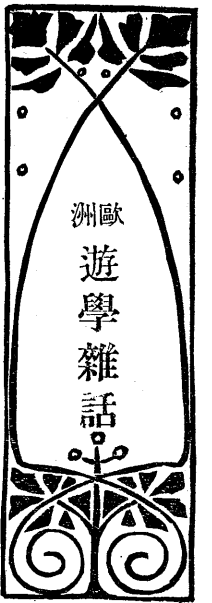 歐洲
遊學雜話